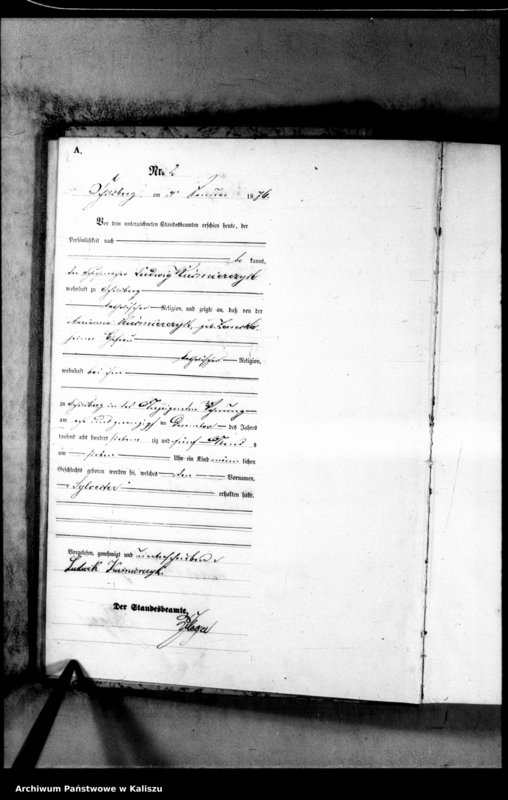 A.
Nr. 2
Schildberg am 3 Januar 1876.
Vor dem unterzeichneten Standesbeamten erschien heute, der
Persönlichkeit nach
be kannt,
der Ludwig Kuśmierczyk
wohnhaft zu Schildberg
katholischer Religion, und zeigte an, daß von der
Marianna Kuśmierczyk, geb.
seiner Ehefrau
katholischer Religion,
wohnhaft bei ihm
zu Schildberg in des Wohnung
am ein und zwanzigsten Dezember des Jahres
tausend acht hundert sieben zig und fünf Abends
um sieben Uhr ein Kind männ lichen
Geschlechts geboren worden sei, welches den Vornamen,
Sylvester
erhalten habe.
Vorgelesen, genehmigt und unterschrieben
Ludwik Kuśmierczyk
Der Standesbeamte.
Archiwum Państwowe w Kaliszu